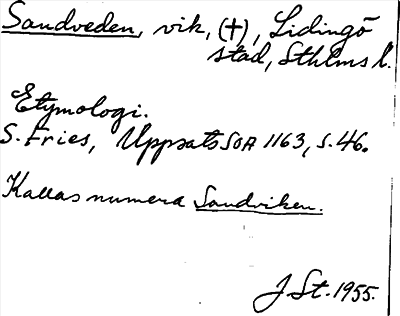 Sandveden, vik, (†), Lidingö
stad, Sthlms l.
Etymologi.
S. Fries, Uppsats SOA 1163, s. 46.
Kallas numera Sandviken.
J St. 1955.